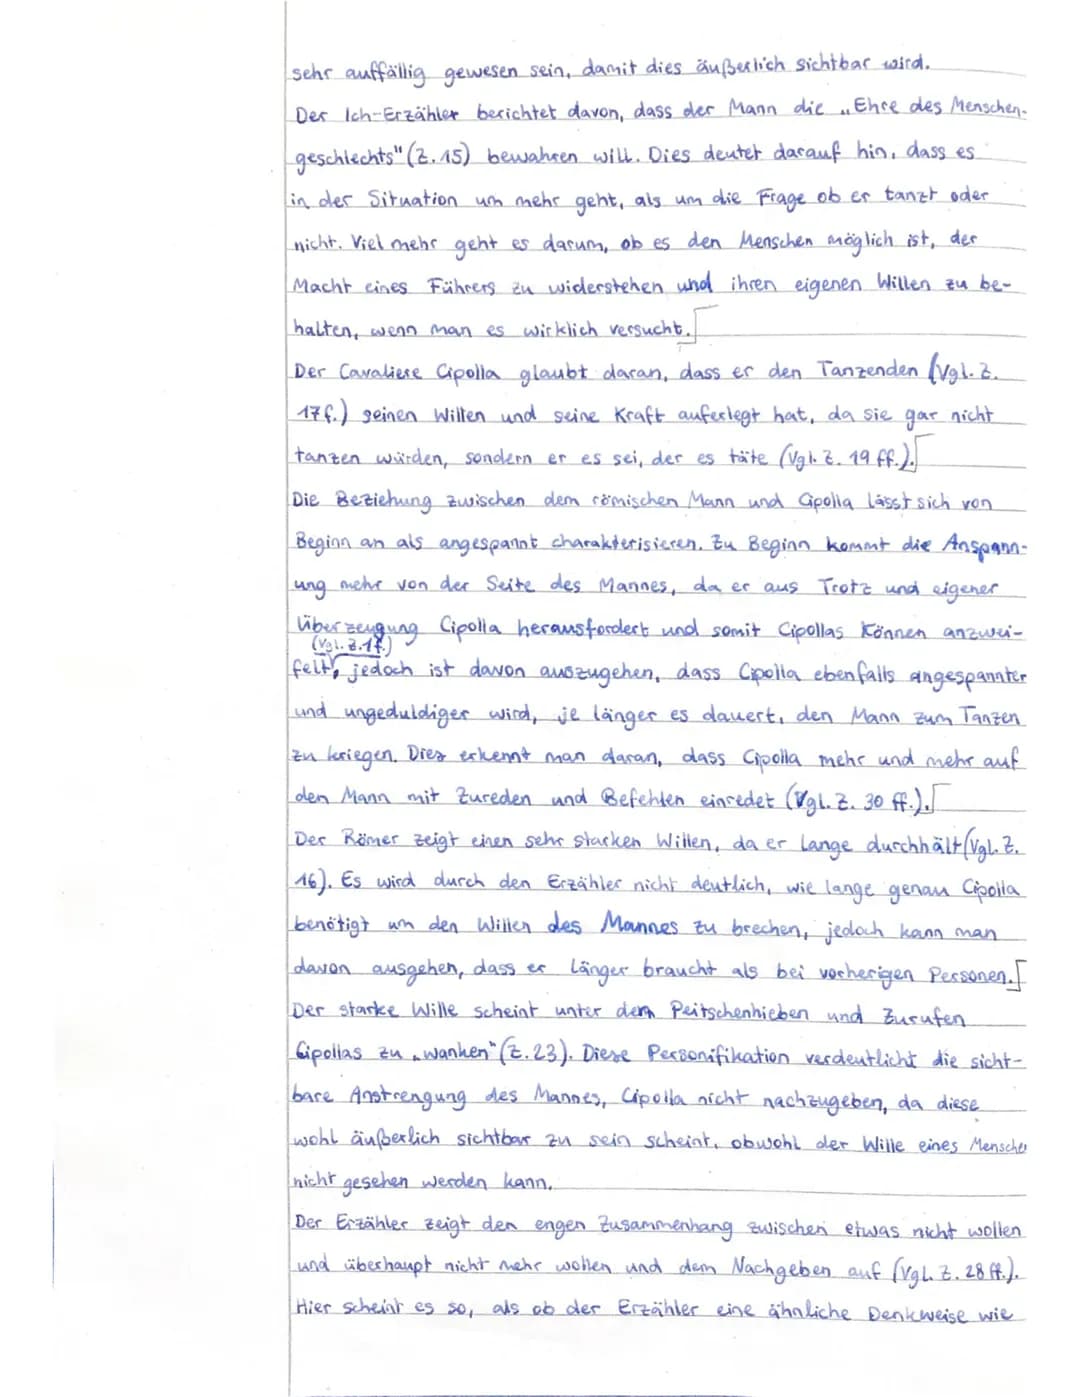 sehr auffällig gewesen sein, damit dies äußerlich sichtbar wird.
Der Ich-Erzähler berichtet davon, dass der Mann die „Ehre des Menschen-
geschlechts" (Z. 15) bewahren will. Dies deutet darauf hin, dass es
in der Situation um mehr geht, als um die Frage ob er tanzt oder
nicht. Viel mehr geht es darum, ob es den Menschen möglich ist, der
Macht eines Führers zu widerstehen und ihren eigenen Willen zu be-
halten, wenn man es wirklich versucht.
Der Cavaliere Cipolla glaubt daran, dass er den Tanzenden (Vgl. Z.
17f.) seinen Willen und seine Kraft auferlegt hat, da sie gar nicht
tanzen würden, sondern er es sei, der es täte (Vgl. Z. 19 ff.).
Die Beziehung zwischen dem römischen Mann und Cipolla lässt sich von
Beginn an als angespannt charakterisieren. Zu Beginn kommt die Anspann-
ung mehr von der Seite des Mannes, da er aus Trotz und eigener
Überzeugung Cipolla herausfordert und somit Cipollas Können anzwei-
(Vgl. Z. 1f.)
felt, jedoch ist davon auszugehen, dass Cipolla ebenfalls angespannter
und ungeduldiger wird, je länger es dauert, den Mann zum Tanzen
zu kriegen. Dies erkennt man daran, dass Cipolla mehr und mehr auf
den Mann mit Zureden und Befehlen einredet (Vgl. Z. 30 ff.).
Der Römer zeigt einen sehr starken Willen, da er lange durchhält (Vgl. Z.
16). Es wird durch den Erzähler nicht deutlich, wie lange genau Cipolla
benötigt um den Willen des Mannes zu brechen, jedoch kann man
davon ausgehen, dass er länger braucht als bei vorherigen Personen.
Der starke Wille scheint unter dem Peitschenhieben und Zurufen
Cipollas zu „wanken" (Z. 23). Diese Personifikation verdeutlicht die sicht-
bare Anstrengung des Mannes, Cipolla nicht nachzugeben, da diese
wohl äußerlich sichtbar zu sein scheint, obwohl der Wille eines Mensche
nicht gesehen werden kann.
Der Erzähler zeigt den engen Zusammenhang zwischen etwas nicht wollen
und überhaupt nicht mehr wollen und dem Nachgeben auf (Vgl. Z. 28 ff.).
Hier scheint es so, als ob der Erzähler eine ähnliche Denkweise wie